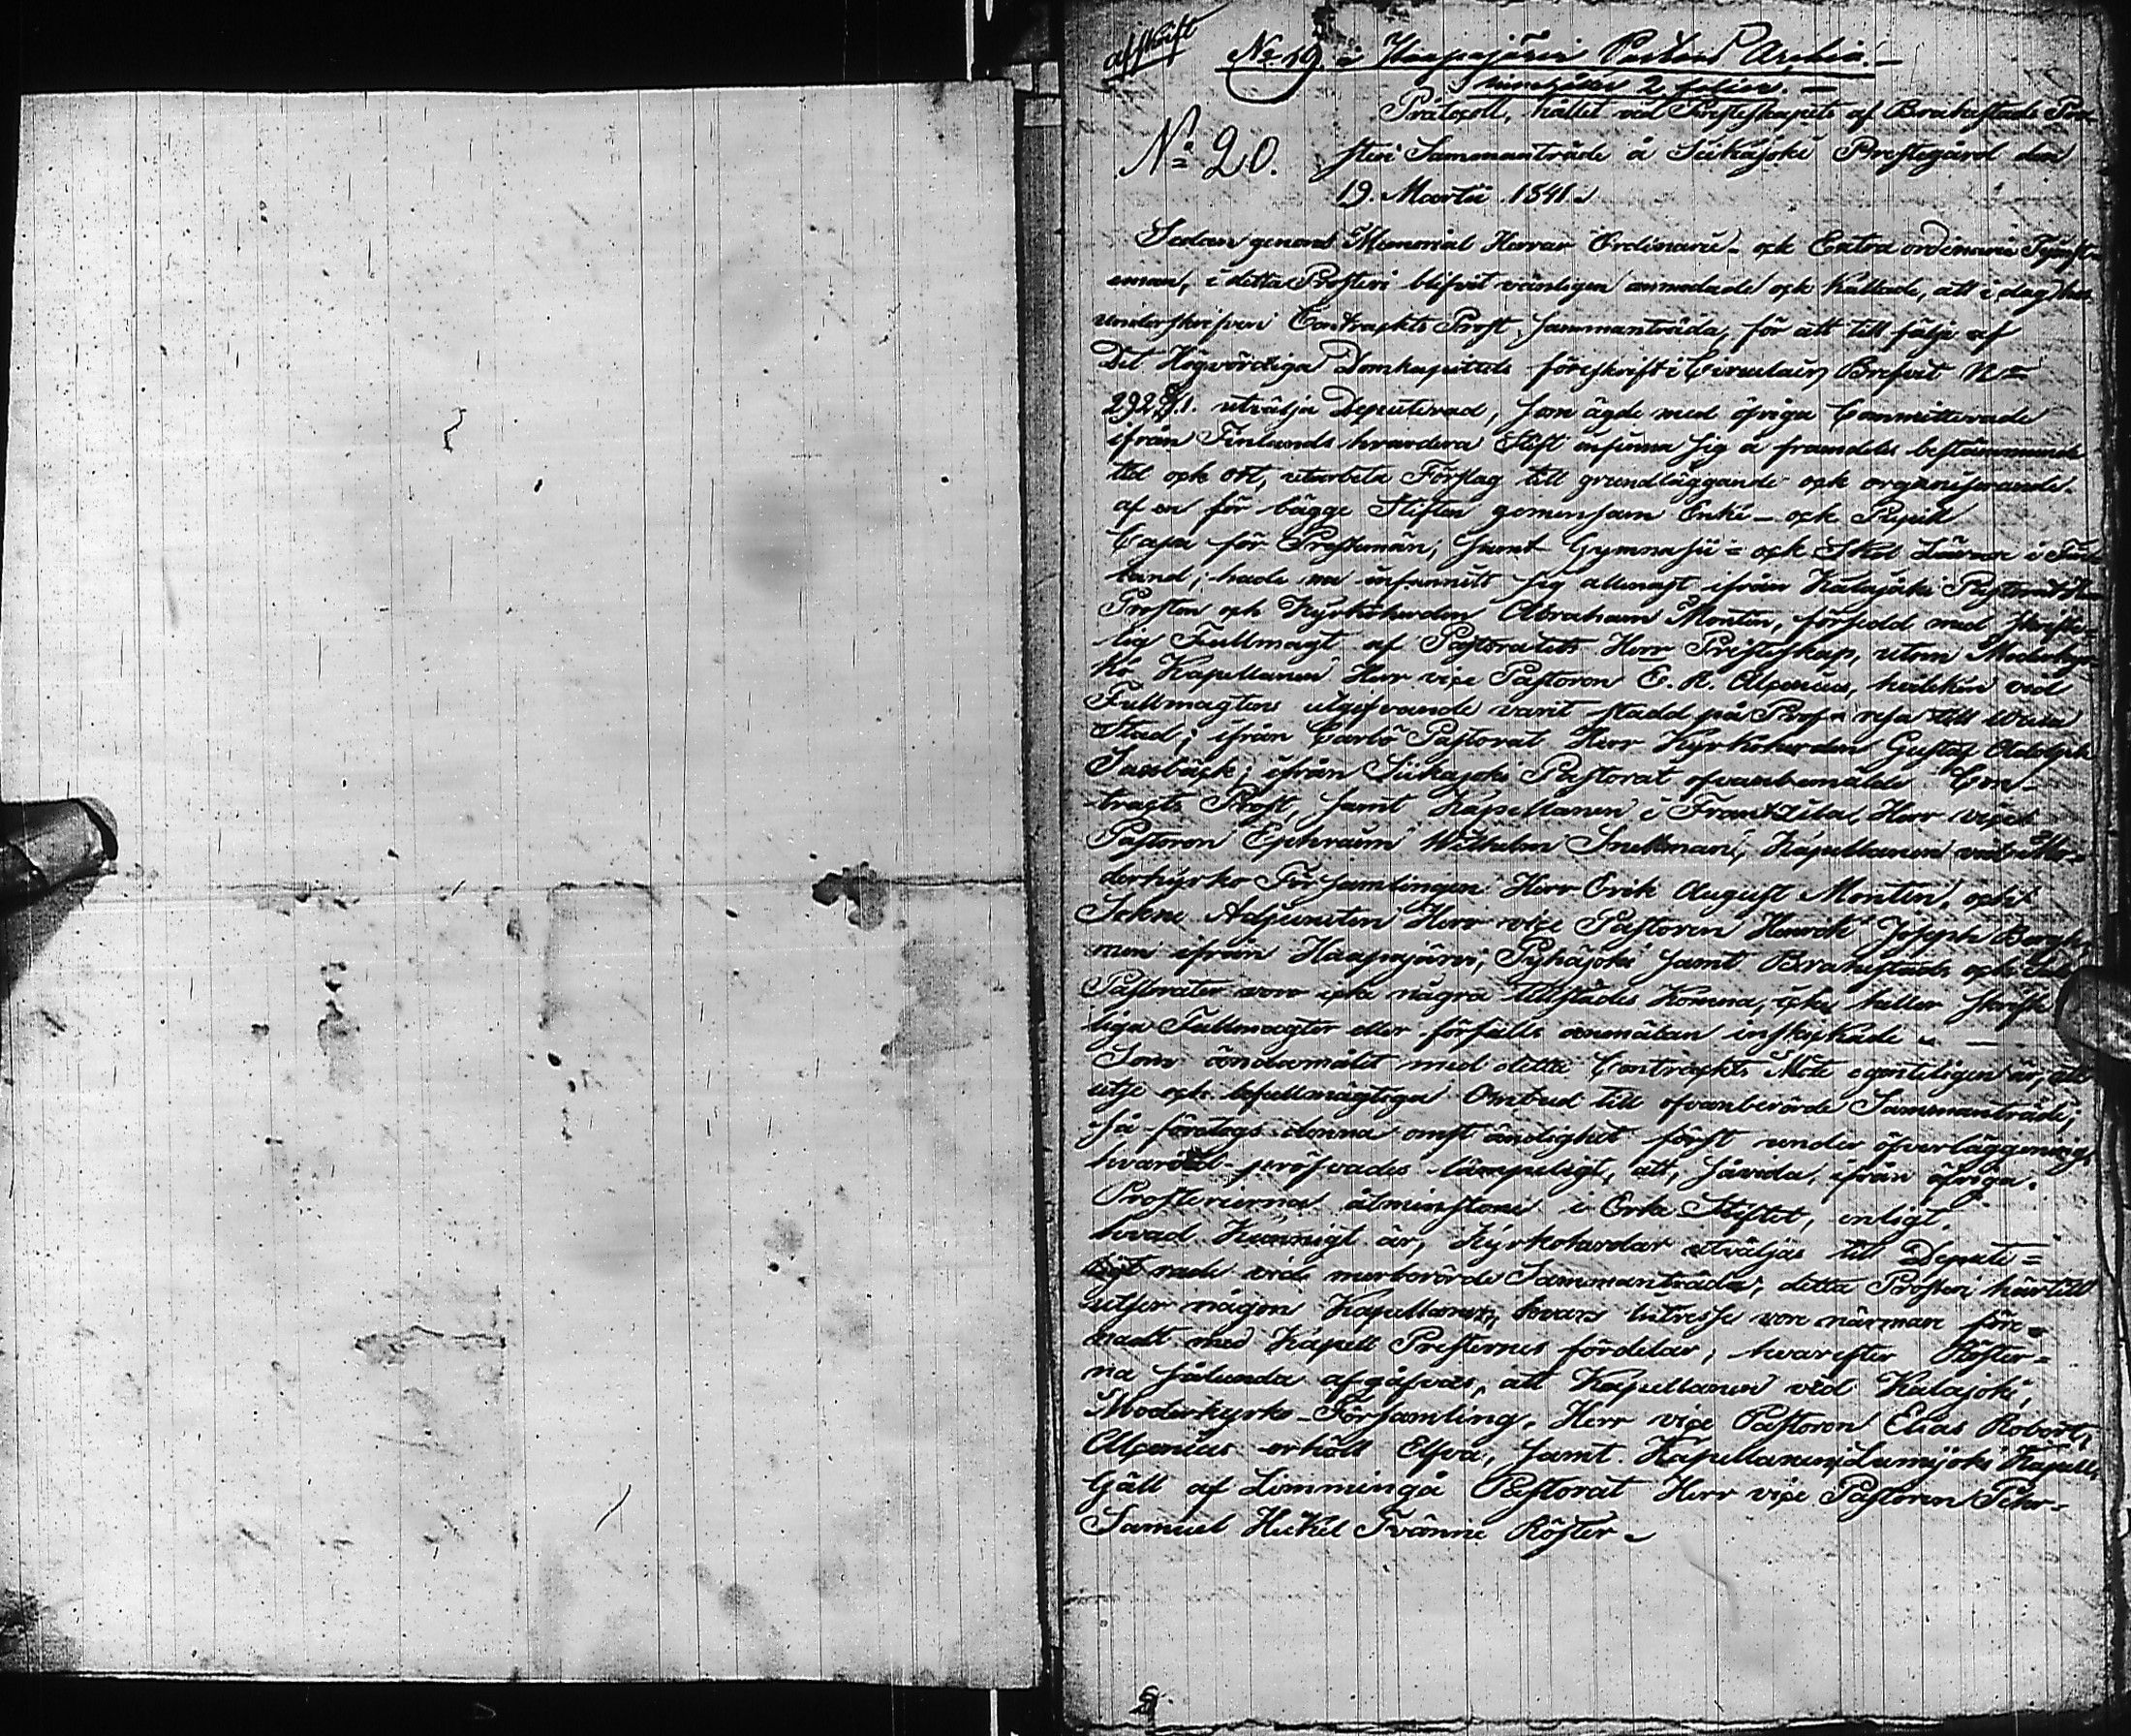 afskrift
No 19. i Haapajärvi Pastors Archiv.
innehåller 2 folier.
Protocoll, hållet vid Presterskapets af Brahestads Pro-
No 20.
steri Sammanträde å Siikajoki Prestegård den
19. Martii 1841.
Sedan genom Memorial Herrar Ordinarie- och Extra ordinarie Tjenst-
emän, i detta Prosteri blifvit vänligen anmodade och kallade, att i dag hos
underskrifven Contrackts Prost, sammanträda, för att till följe af
Det Högvördiga Domkapitlets föreskrift i Circulair Brefvet No
292 § 1. utvälja Deputerad, som ägde med öfriga Committerade
ifrån Finlands hvardera Stift infinna sig å framdeles bestämmande
tid och ort, utarbeta Förslag till grundläggande och organiserande
af en för bägge Stiften gemensam Enke- och Pupill
Cassa för Prestemän, samt Gymnasii- och Skol Lärare i Fin-
land; hade nu infunnits sig allenast ifrån Kalajoki Pastorat
Prosten och Kyrkoherden Abraham Montin, försedd med skrift-
lig Fullmagt af Pastoratets Herr Presterskap, utom Moderkyr-
ko Kapellanen Herr vice Pastoren E. R. Alcenius, hvilken vid
Fullmagtens utgifvande varit stadd på resa till Wasa
Stad; ifrån Carlö Pastorat Herr Kyrkoherden Gustaf Adolph
; ifrån Siikajoki Pastorat ofvanbemälde Con-
tracts Prost, samt Kapellanen i Frantzila, Herr vice
Pastoren Ephraim Wilhelm Snellman, Kapellanen vid Mo-
derkyrko Församlingen Herr Erik August Montin, och
Adjuncten Herr vice Pastoren Henrik Joseph Bergh;
men ifrån Haapajärvi, Pyhäjoki samt Brahestads och
Pastorater voro icke några tillstädes komna, icke heller skrift-
liga Fullmagter eller förfalls anmälan inskickade.
Som ändamålet med detta Contrackts Möte egenteligen är, att
utse och befullmägtiga Ombud till ofvanberörde Sammanträde;
så företogs denna omständighet först under öfverläggning,
hvarvid pröfvades lämpeligt, att, såvida, ifrån öfriga
Prosterierna åtminstone i Stiftet, enligt
hvad Kunnigt är, Kyrkoherdar utväljas till Depute-
rade vid merberörde Sammanträde, detta Prosteri härtill
utser någon Kapellan, hvars intresse vore närmare före-
nadt med Kapell Presternes fördelar; hvarefter Röster-
na sålunda afgåfvos, att Kapellanen vid Kalajoki
Moderkyrko-Församling, Herr vice Pastoren Elias Robert
Alcenius erhöll Elfva, samt Kapellanen i Lumijoki Kapell
Gäll af Limmingå Pastorat Herr vice Pastoren Pehr
Samuel Heikel Tvänne Röster.